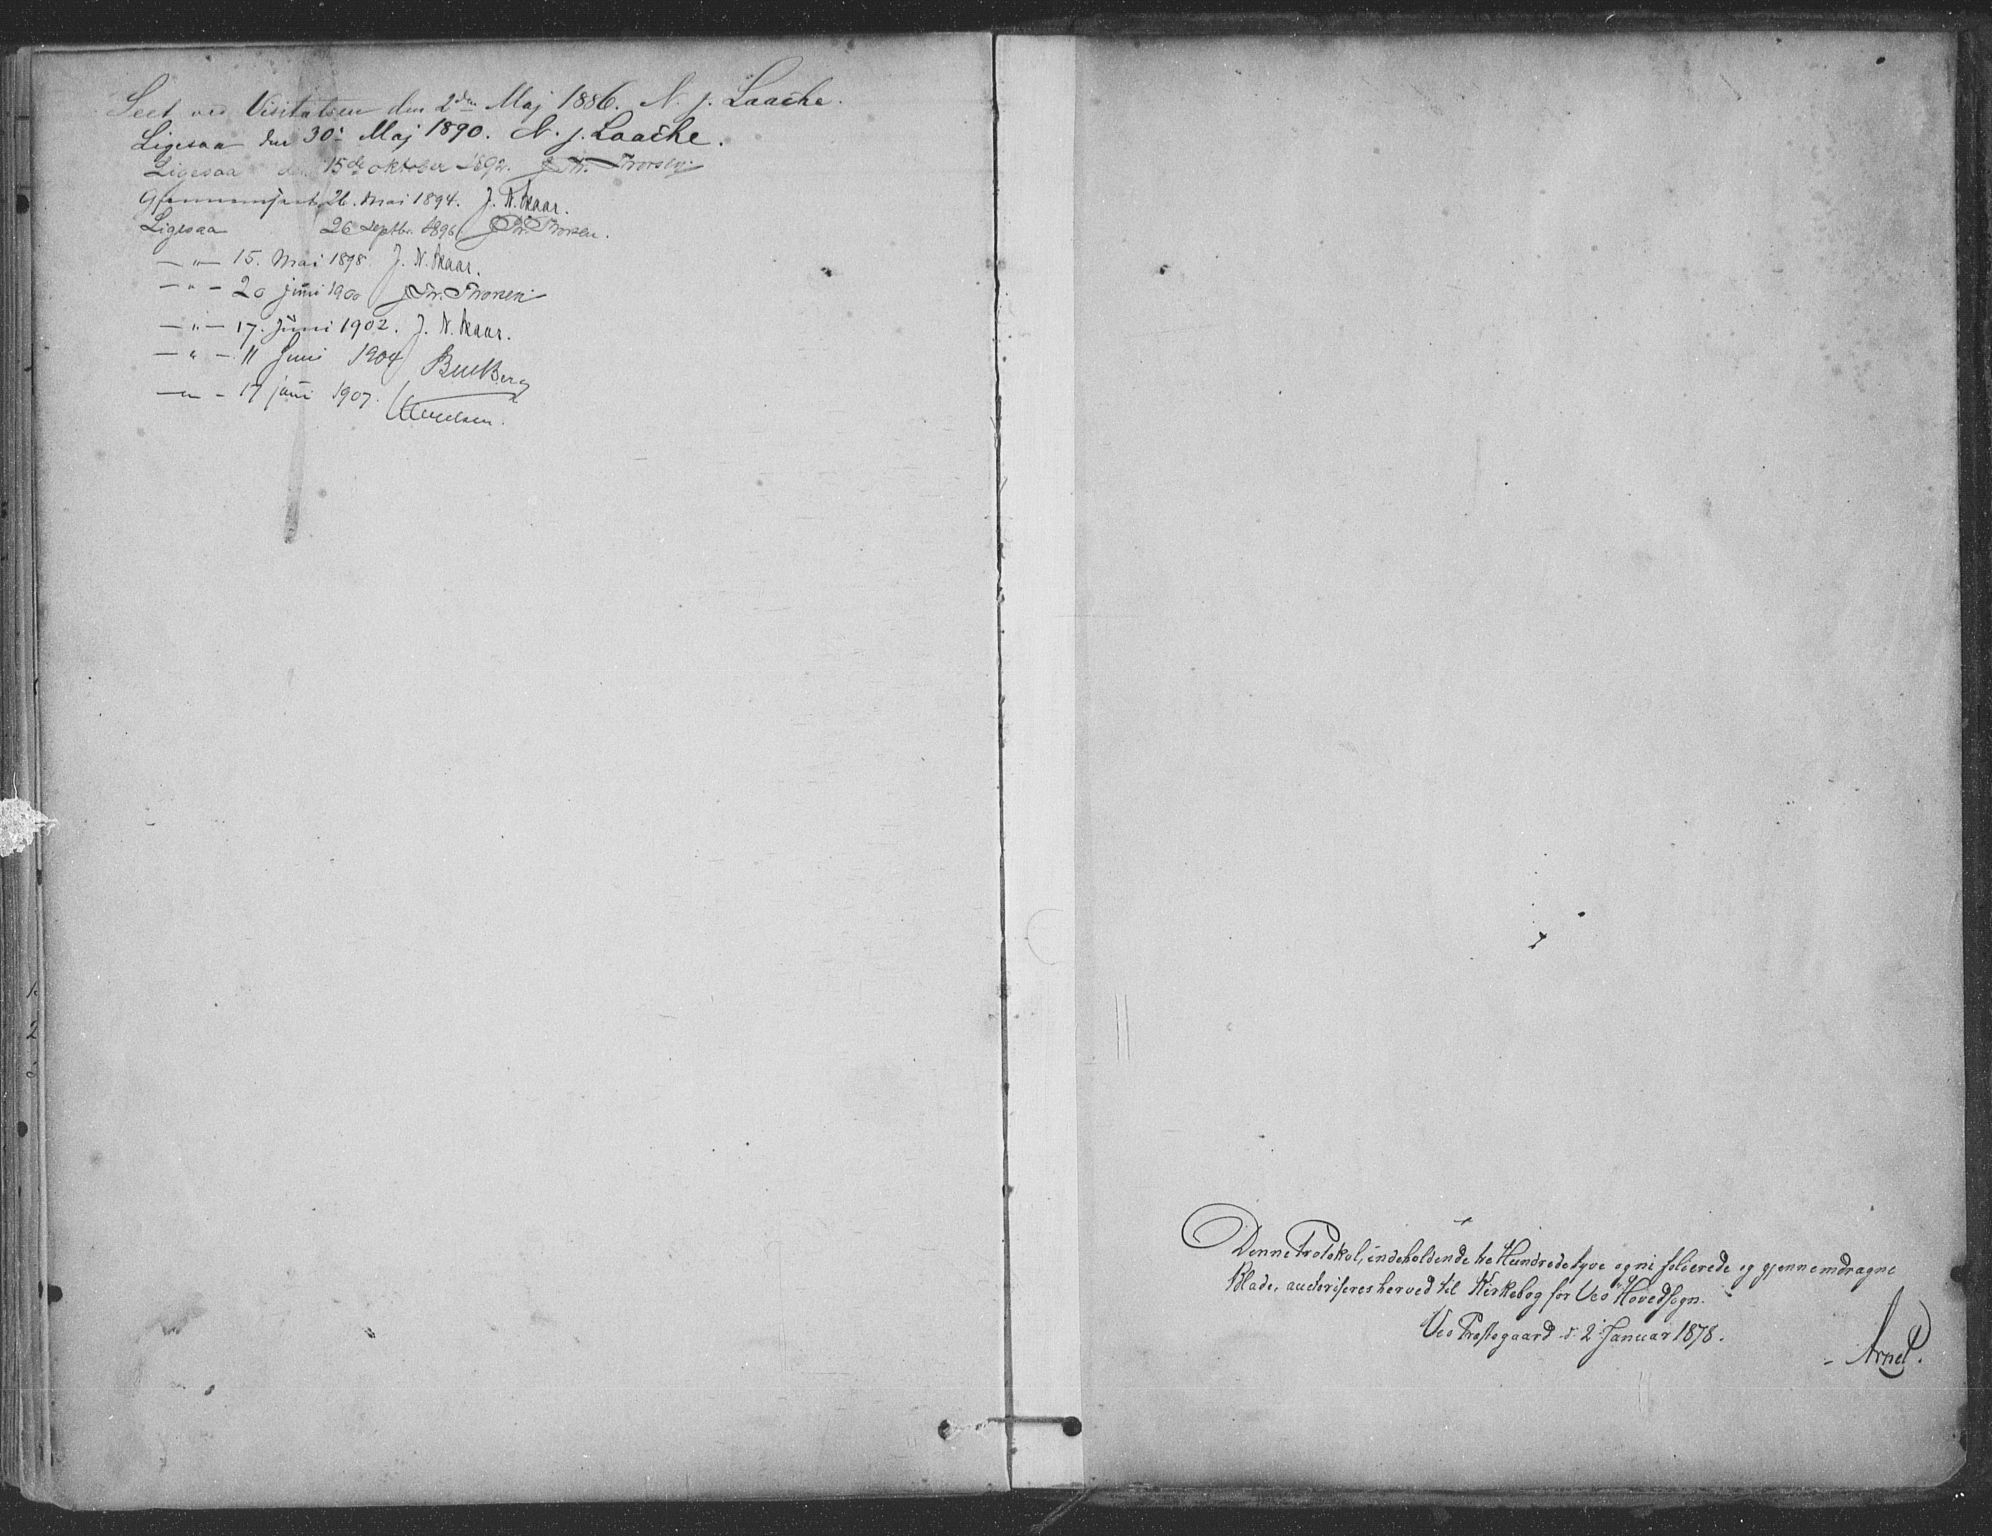 Seet ved Visitatsen den 2den Maj 1886. N. J. Laache.
Ligesaa den 30: Maj 1890. N. J. Laache.
Ligesaa den 15de oktober 1892.
Gjennemseet 26. Mai 1894. J. N. Skaar.
Ligesaa 26 Septbr. 1896
— " — 15. Mai 1898 J. N. Skaar.
— " — 20 juni 1900
— " — 17. Juni 1902. J. N. Skaar.
— " — 11 Juni 1904
— " — 17 juni 1907.
Denne Protokol, indeholdende tre Hundrede tyve og ni folierede og gjennemdragne
Blade, auctoriseres herved til Kirkebog for Veø Hovedsogn.
Veø Præstegaard d. 2. Januar 1878.